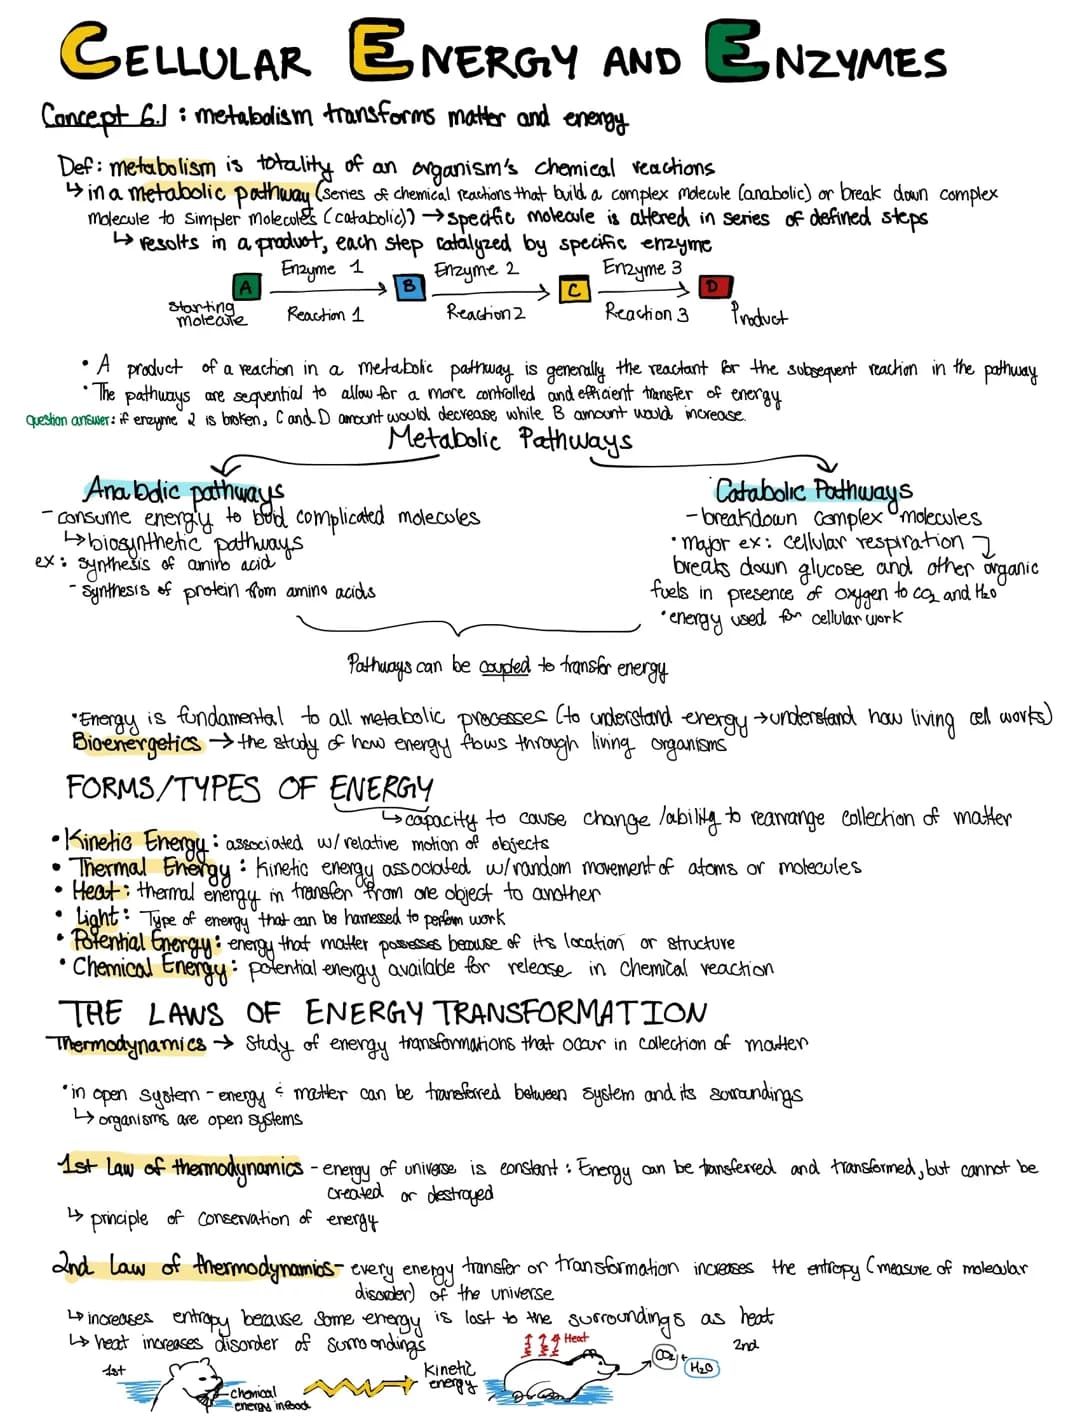 CELLULAR ENERGY AND ENZYMES
Concept 6.1 : metabolism transforms matter and energy
Def: metabolism is totality of an organism's chemical reactions
↳ in a metabolic pathway (series of chemical reactions that build a complex molecule (anabolic) or break down complex
molecule to simpler molecules (catabolic)) → specific molecule is altered in series of defined steps
↳ results in a product, each step catalyzed by specific enzyme
Enzyme 1 Enzyme 2 Enzyme 3
A B C D
starting molecule Reaction 1 Reaction 2 Reaction 3 Product
• A product of a reaction in a metabolic pathway is generally the reactant for the subsequent reaction in the pathway
• The pathways are sequential to allow for a more controlled and efficient transfer of energy
Question answer: if enzyme 2 is broken, C and D amount would decrease while B amount would increase.
Metabolic Pathways
Anabolic pathways
- consume energy to build complicated molecules
↳ biosynthetic pathways
ex: synthesis of amino acid
- synthesis of protein from amino acids
Catabolic Pathways
- breakdown complex molecules
• major ex: cellular respiration
breaks down glucose and other organic
fuels in presence of oxygen to CO2 and H2O
• energy used for cellular work
Pathways can be coupled to transfer energy
• Energy is fundamental to all metabolic processes (to understand energy → understand how living cell works)
Bioenergetics → the study of how energy flows through living organisms
FORMS/TYPES OF ENERGY
↳ capacity to cause change /ability to rearrange collection of matter
• Kinetic Energy: associated w/ relative motion of objects
• Thermal Energy: kinetic energy associated w/random movement of atoms or molecules
• Heat: thermal energy in transfer from one object to another
• Light: Type of energy that can be harnessed to perform work
• Potential Energy: energy that matter possesses because of its location or structure
• Chemical Energy: potential energy available for release in chemical reaction
THE LAWS OF ENERGY TRANSFORMATION
Thermodynamics → study of energy transformations that occur in collection of matter
• in open system - energy & matter can be transferred between system and its surroundings
↳ organisms are open systems
1st law of thermodynamics - energy of universe is constant : Energy can be transferred and transformed, but cannot be
created or destroyed
↳ principle of conservation of energy
2nd law of thermodynamics - every energy transfer or transformation increases the entropy (measure of molecular
disorder) of the universe
↳ increases entropy because some energy is lost to the surroundings as heat
↳ heat increases disorder of surroundings
1st
chemical energy in food
Kinetic energy
Heat
CO2 + H2O
2nd